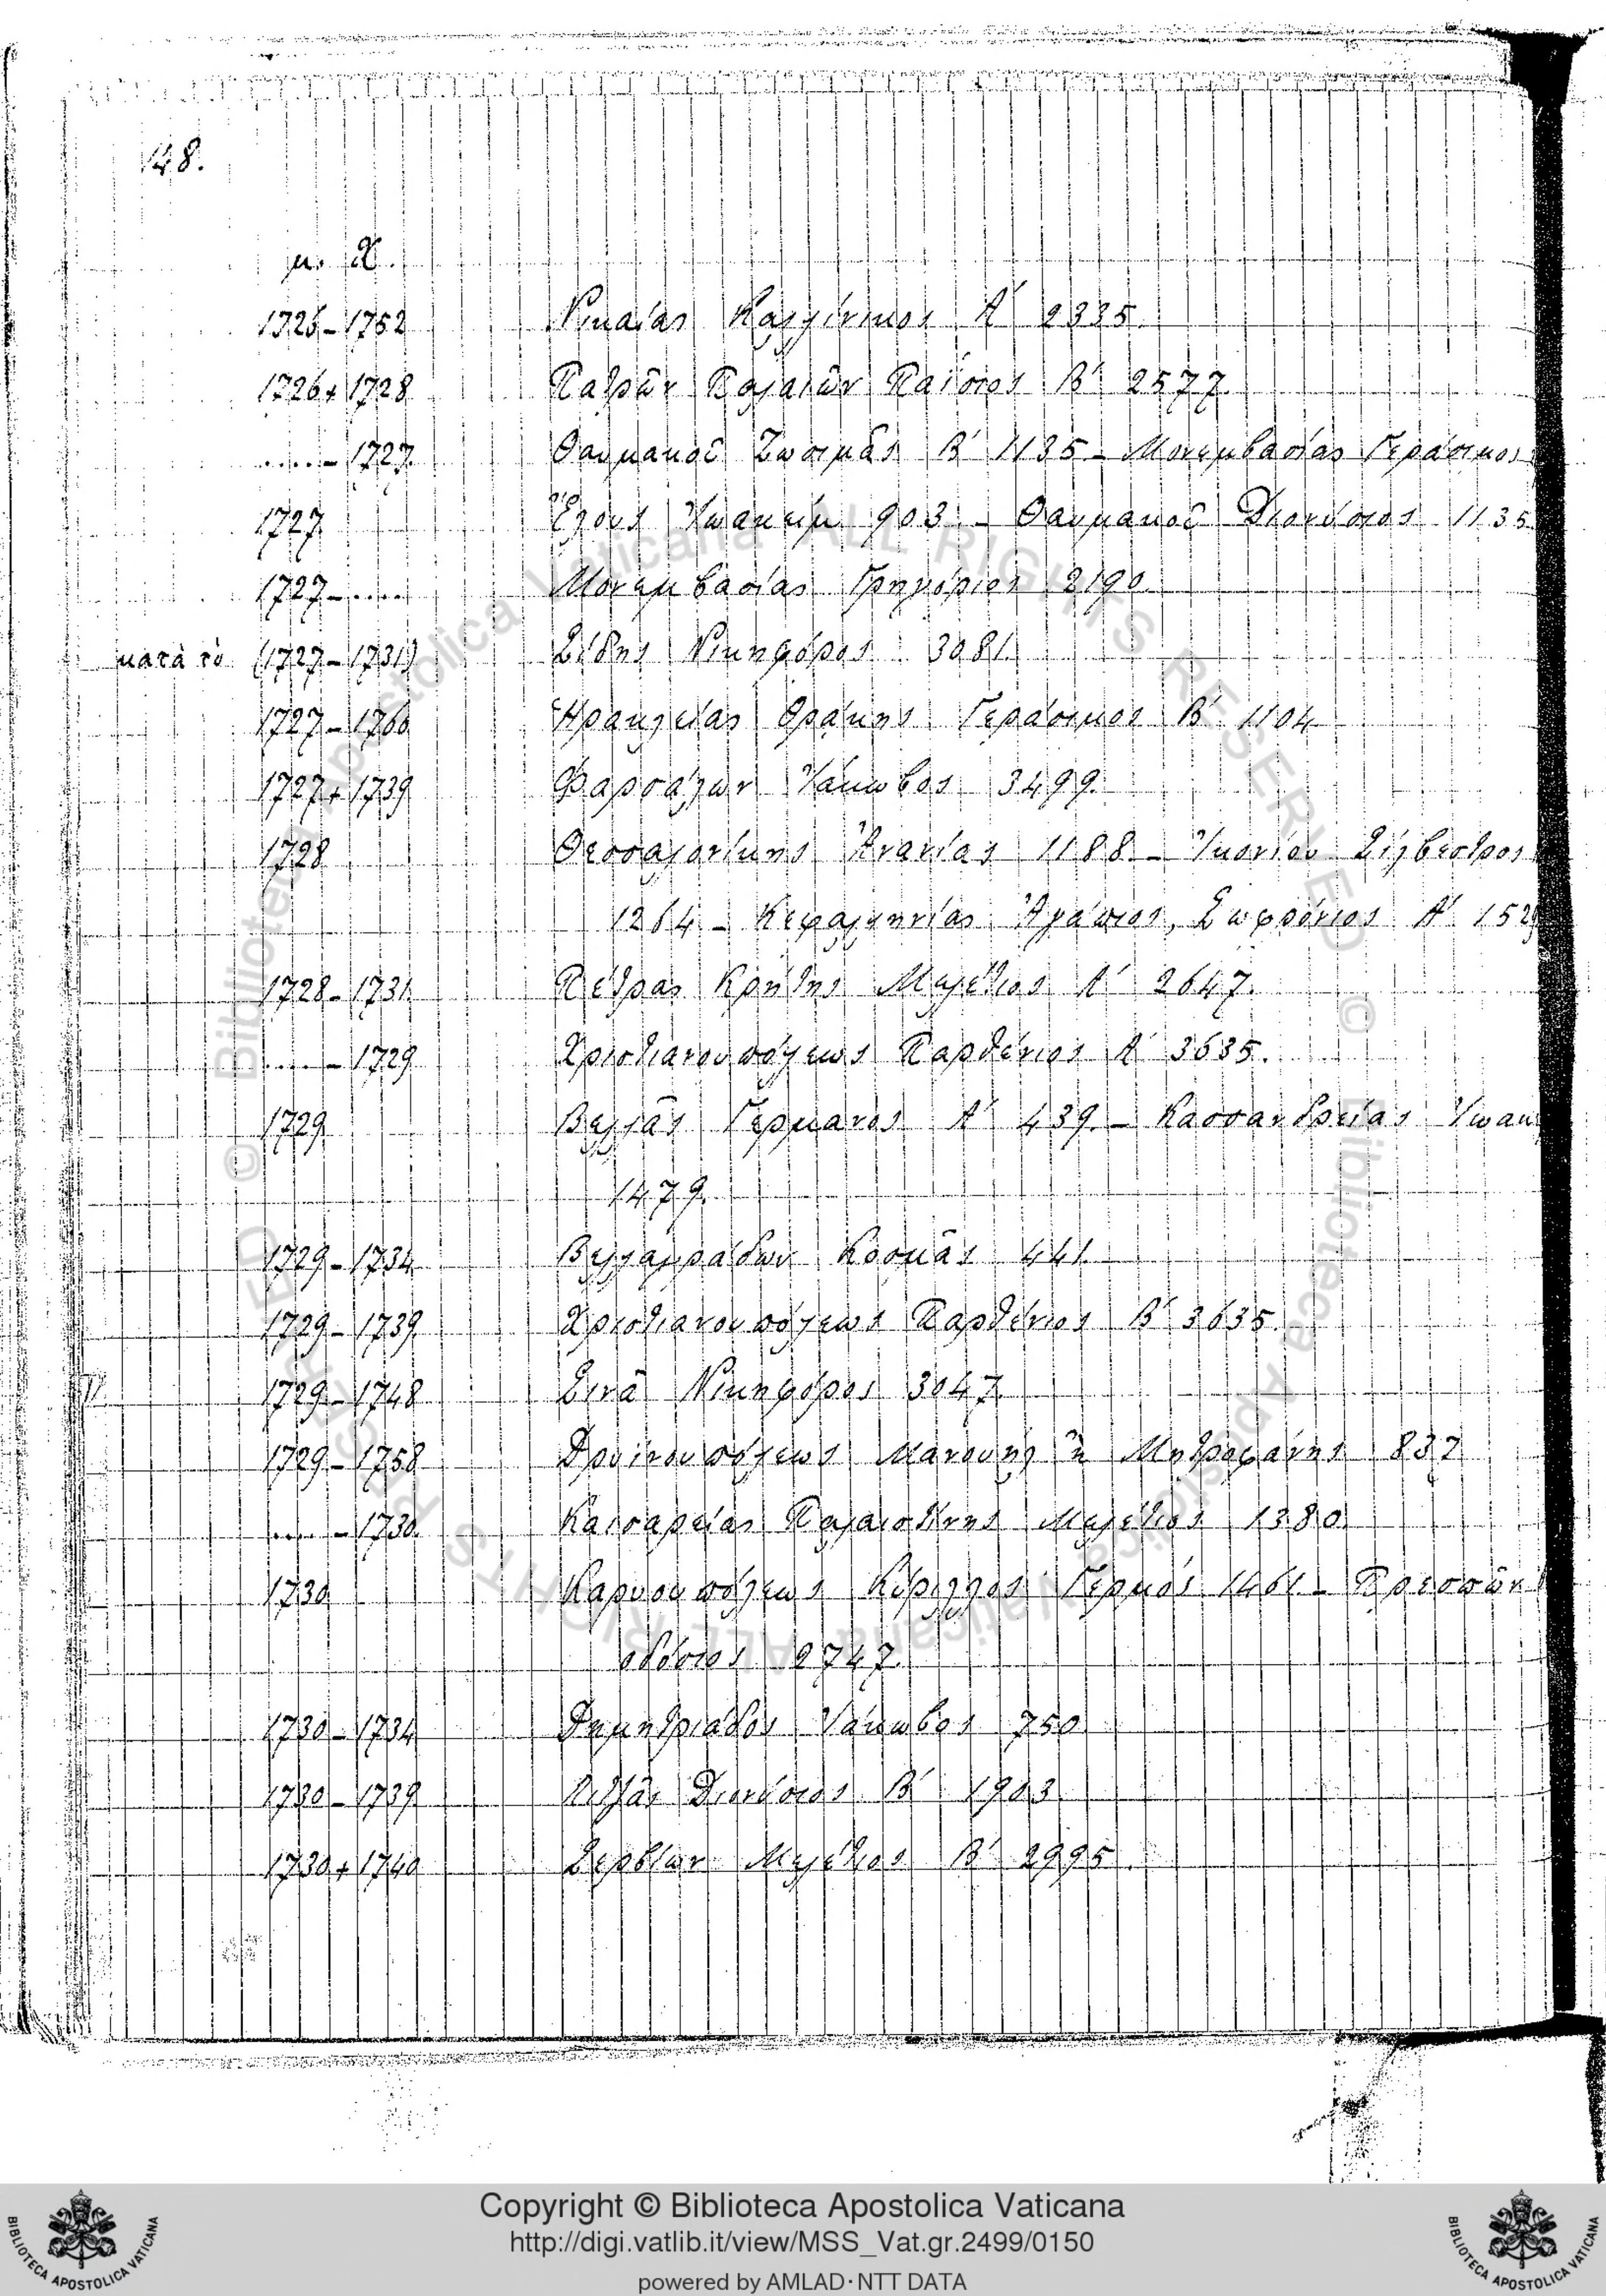 148.
μ. Χ.
1726-1752 Νικαίας Καλλίνικος Α΄ 2335.
1726+1728 Πατρῶν Παλαιῶν Παΐσιος Β΄ 2577.
.....-1727. Θαυμακοῦ Ζωσιμᾶς Β΄ 1135 - Μονεμβασίας Γεράσιμος
1727 Ἕλους Ἰωακείμ 903. - Θαυμακοῦ Διονύσιος 1135
1727-..... Μονεμβασίας Γρηγόριος 2190.
κατὰ τὸ (1727-1731) Σίδης Νικηφόρος 3081.
1727-1760 Ἡρακλείας Θρᾴκης Γεράσιμος Β΄ 1104
1727+1739 Φαρσάλων Ἰάκωβος 3499.
1728 Θεσσαλονίκης Ἀνανίας 1188 - Ἰκονίου Σίλβεστρος
1264 - Κεφαλληνίας Ἀγάπιος, Σωφρόνιος Α΄ 152
1728-1731 Πέτρας Κρήτης Μελέτιος Α΄ 2647.
.....-1729 Χριστιανουπόλεως Παρθένιος Α΄ 3635.
1729 Βελλᾶς Γερμανὸς Α΄ 439. - Κασσανδρείας Ἰωακ
1479.
1729-1734 Βελλαγράδων Κοσμᾶς 441.
1729-1739 Χριστιανουπόλεως Παρθένιος Β΄ 3635
1729-1748 Σινᾶ Νικηφόρος 3047
1729-1758 Δρυϊνουπόλεως Μανουὴλ ἢ Μητροφάνης 837
.....-1730. Καισαρείας Παλαιστίνης Μελέτιος 1380
1730 Καρυουπόλεως Κύριλλος Γερμὸς 1461 - Πρεσπῶν
οδόσιος 2747.
1730-1734 Δημητριάδος Ἰάκωβος 750
1730-1739 Λιτζᾶς Διονύσιος Β΄ 1903
1730+1740 Σερβίων Μελέτιος Β΄ 2995.
© Biblioteca Apostolica Vaticana ALL RIGHTS RESERVED
Copyright © Biblioteca Apostolica Vaticana
http://digi.vatlib.it/view/MSS_Vat.gr.2499/0150
powered by AMLAD·NTT DATA
BIBLIOTECA APOSTOLICA VATICANA
BIBLIOTECA APOSTOLICA VATICANA